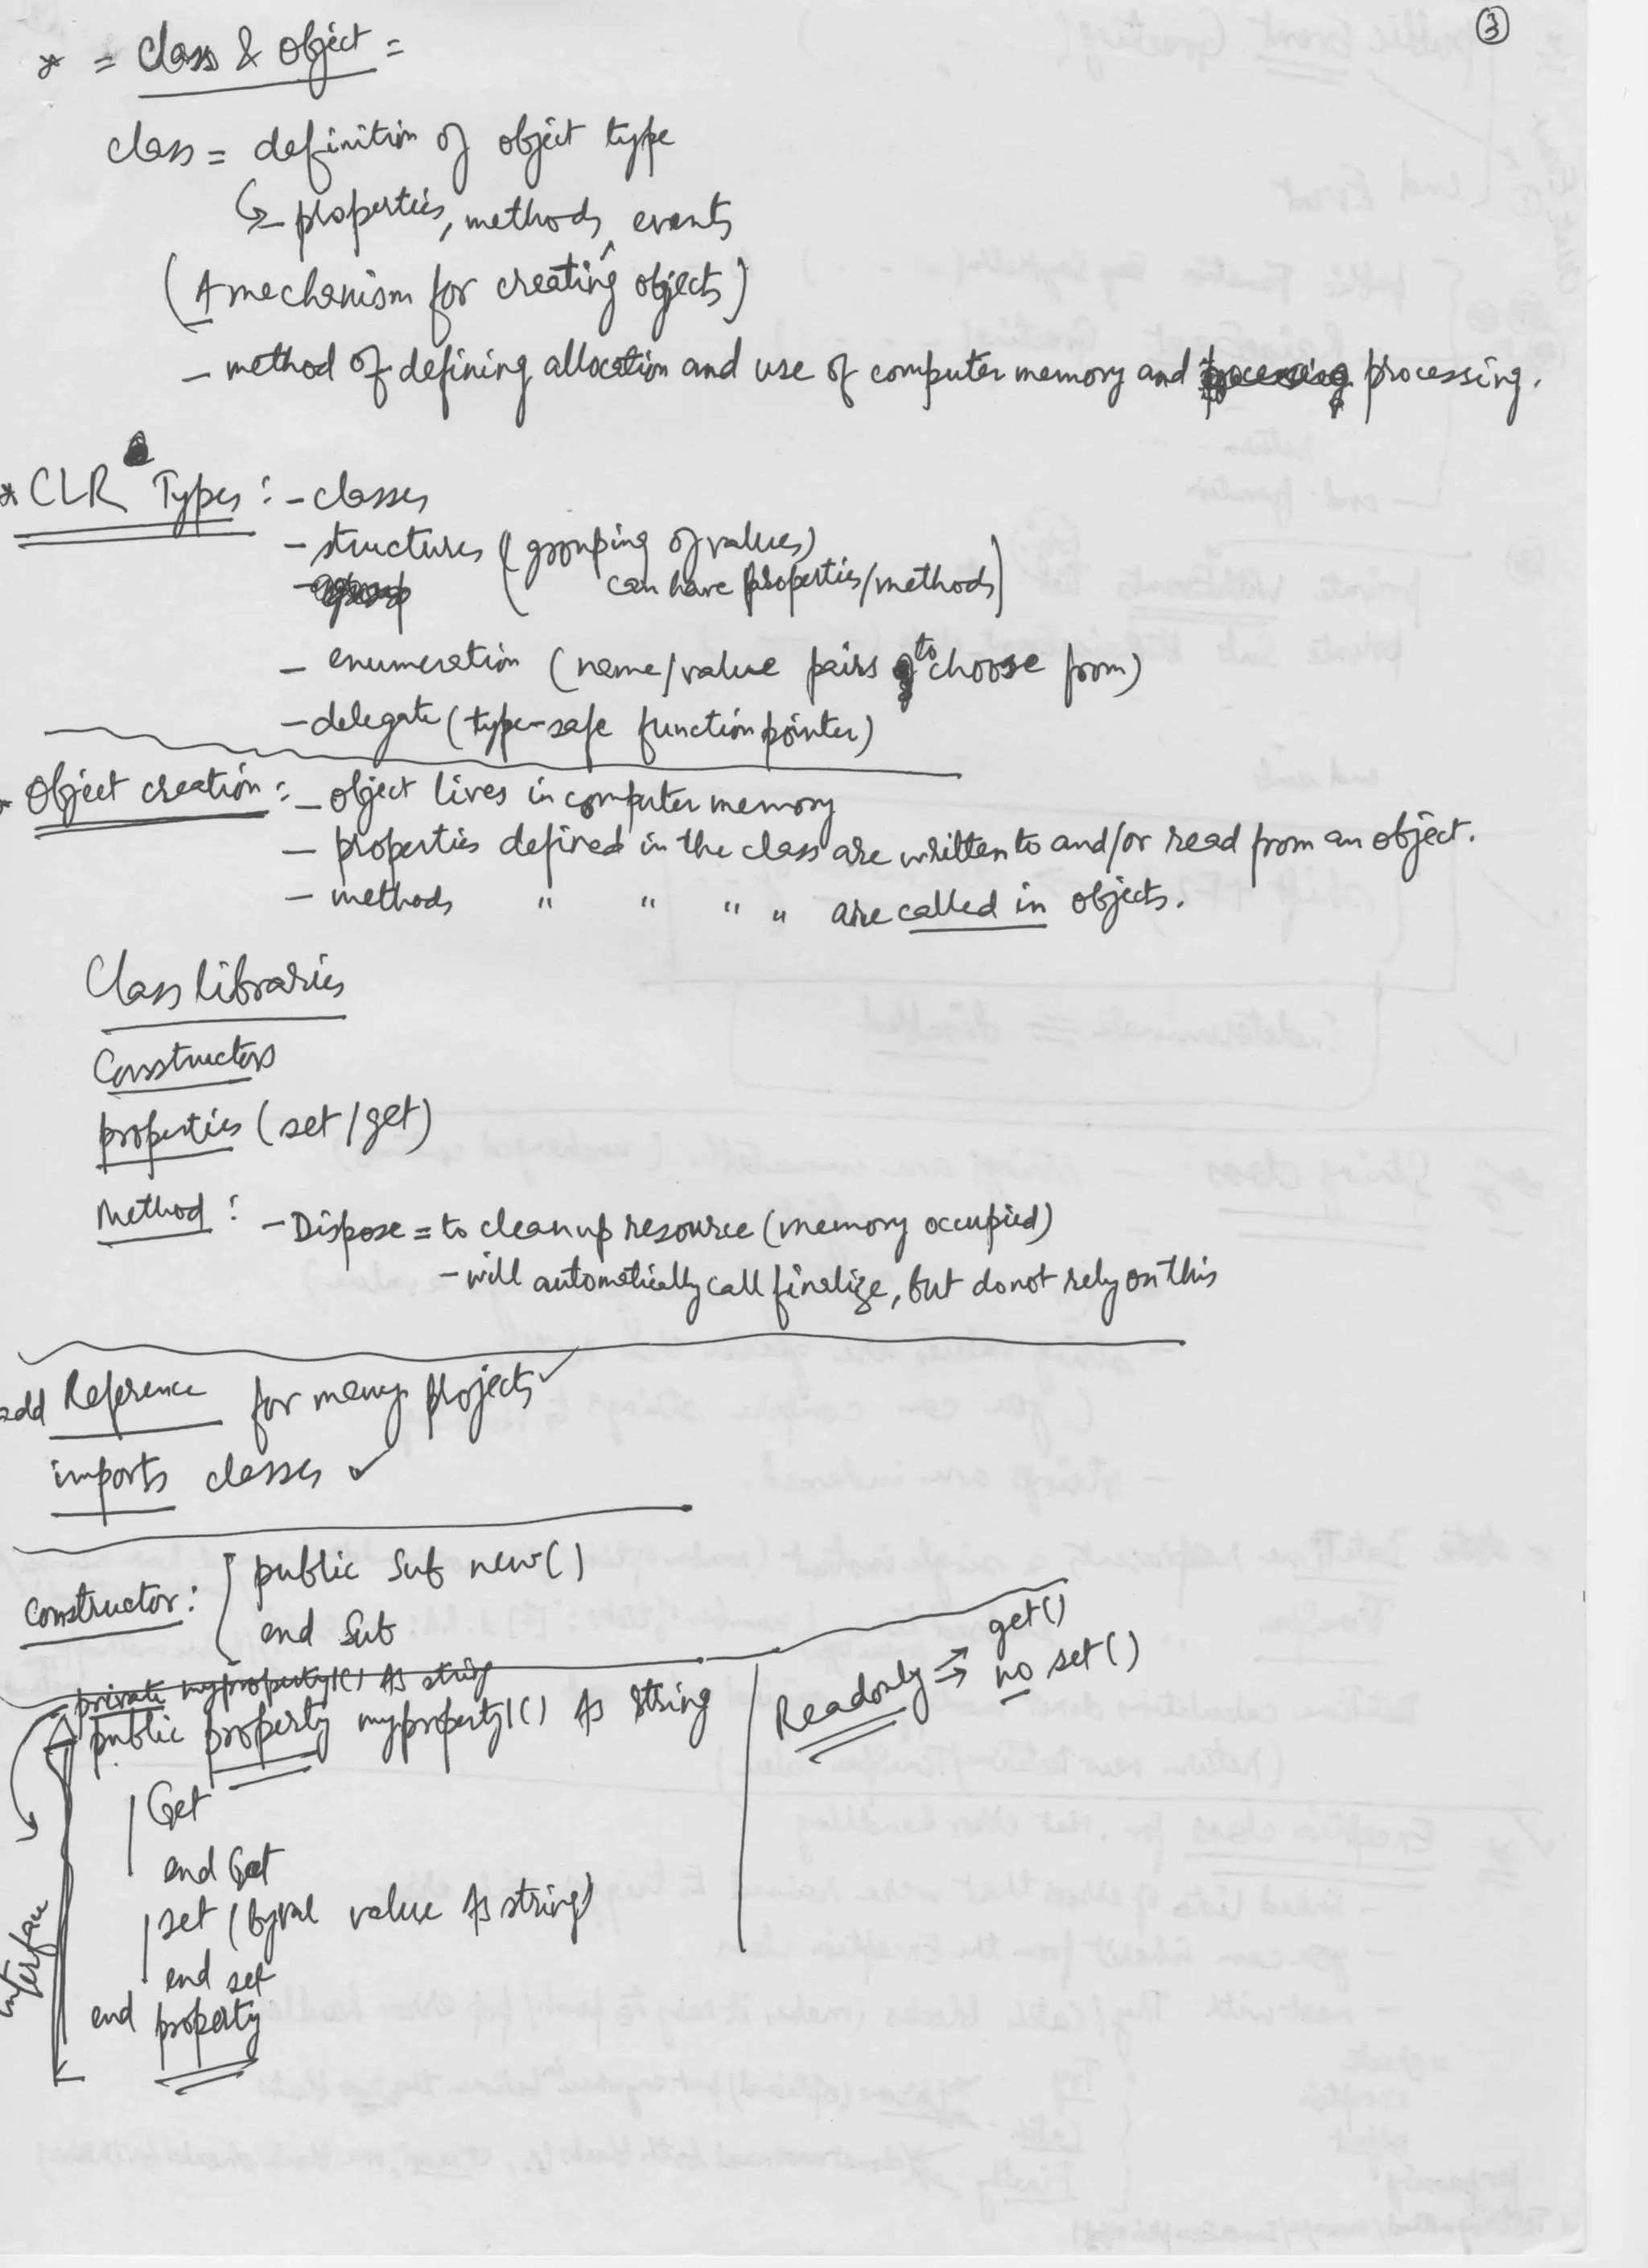 ③
* = Class & Object =
class = definition of object type
↳ properties, methods, events
(A mechanism for creating objects)
- method of defining allocation and use of computer memory and processing.
* CLR Types : - classes
- structures (grouping of values)
can have properties/methods)
- enumeration (name/value pairs to choose from)
- delegate (type-safe function pointer)
Object creation : - object lives in computer memory
- properties defined in the class are written to and/or read from an object.
- methods " " " " are called in objects.
Class libraries
Constructors
properties (set/get)
Method : - Dispose = to cleanup resource (memory occupied)
- will automatically call finalize, but do not rely on this
add Reference for many projects ✓
imports classes ✓
constructor : public Sub new()
end Sub
private myproperty1() As string
public property myproperty1() As String
Get
end Get
set (byval value As string)
end set
end property
interface
Readonly → get()
→ no set()